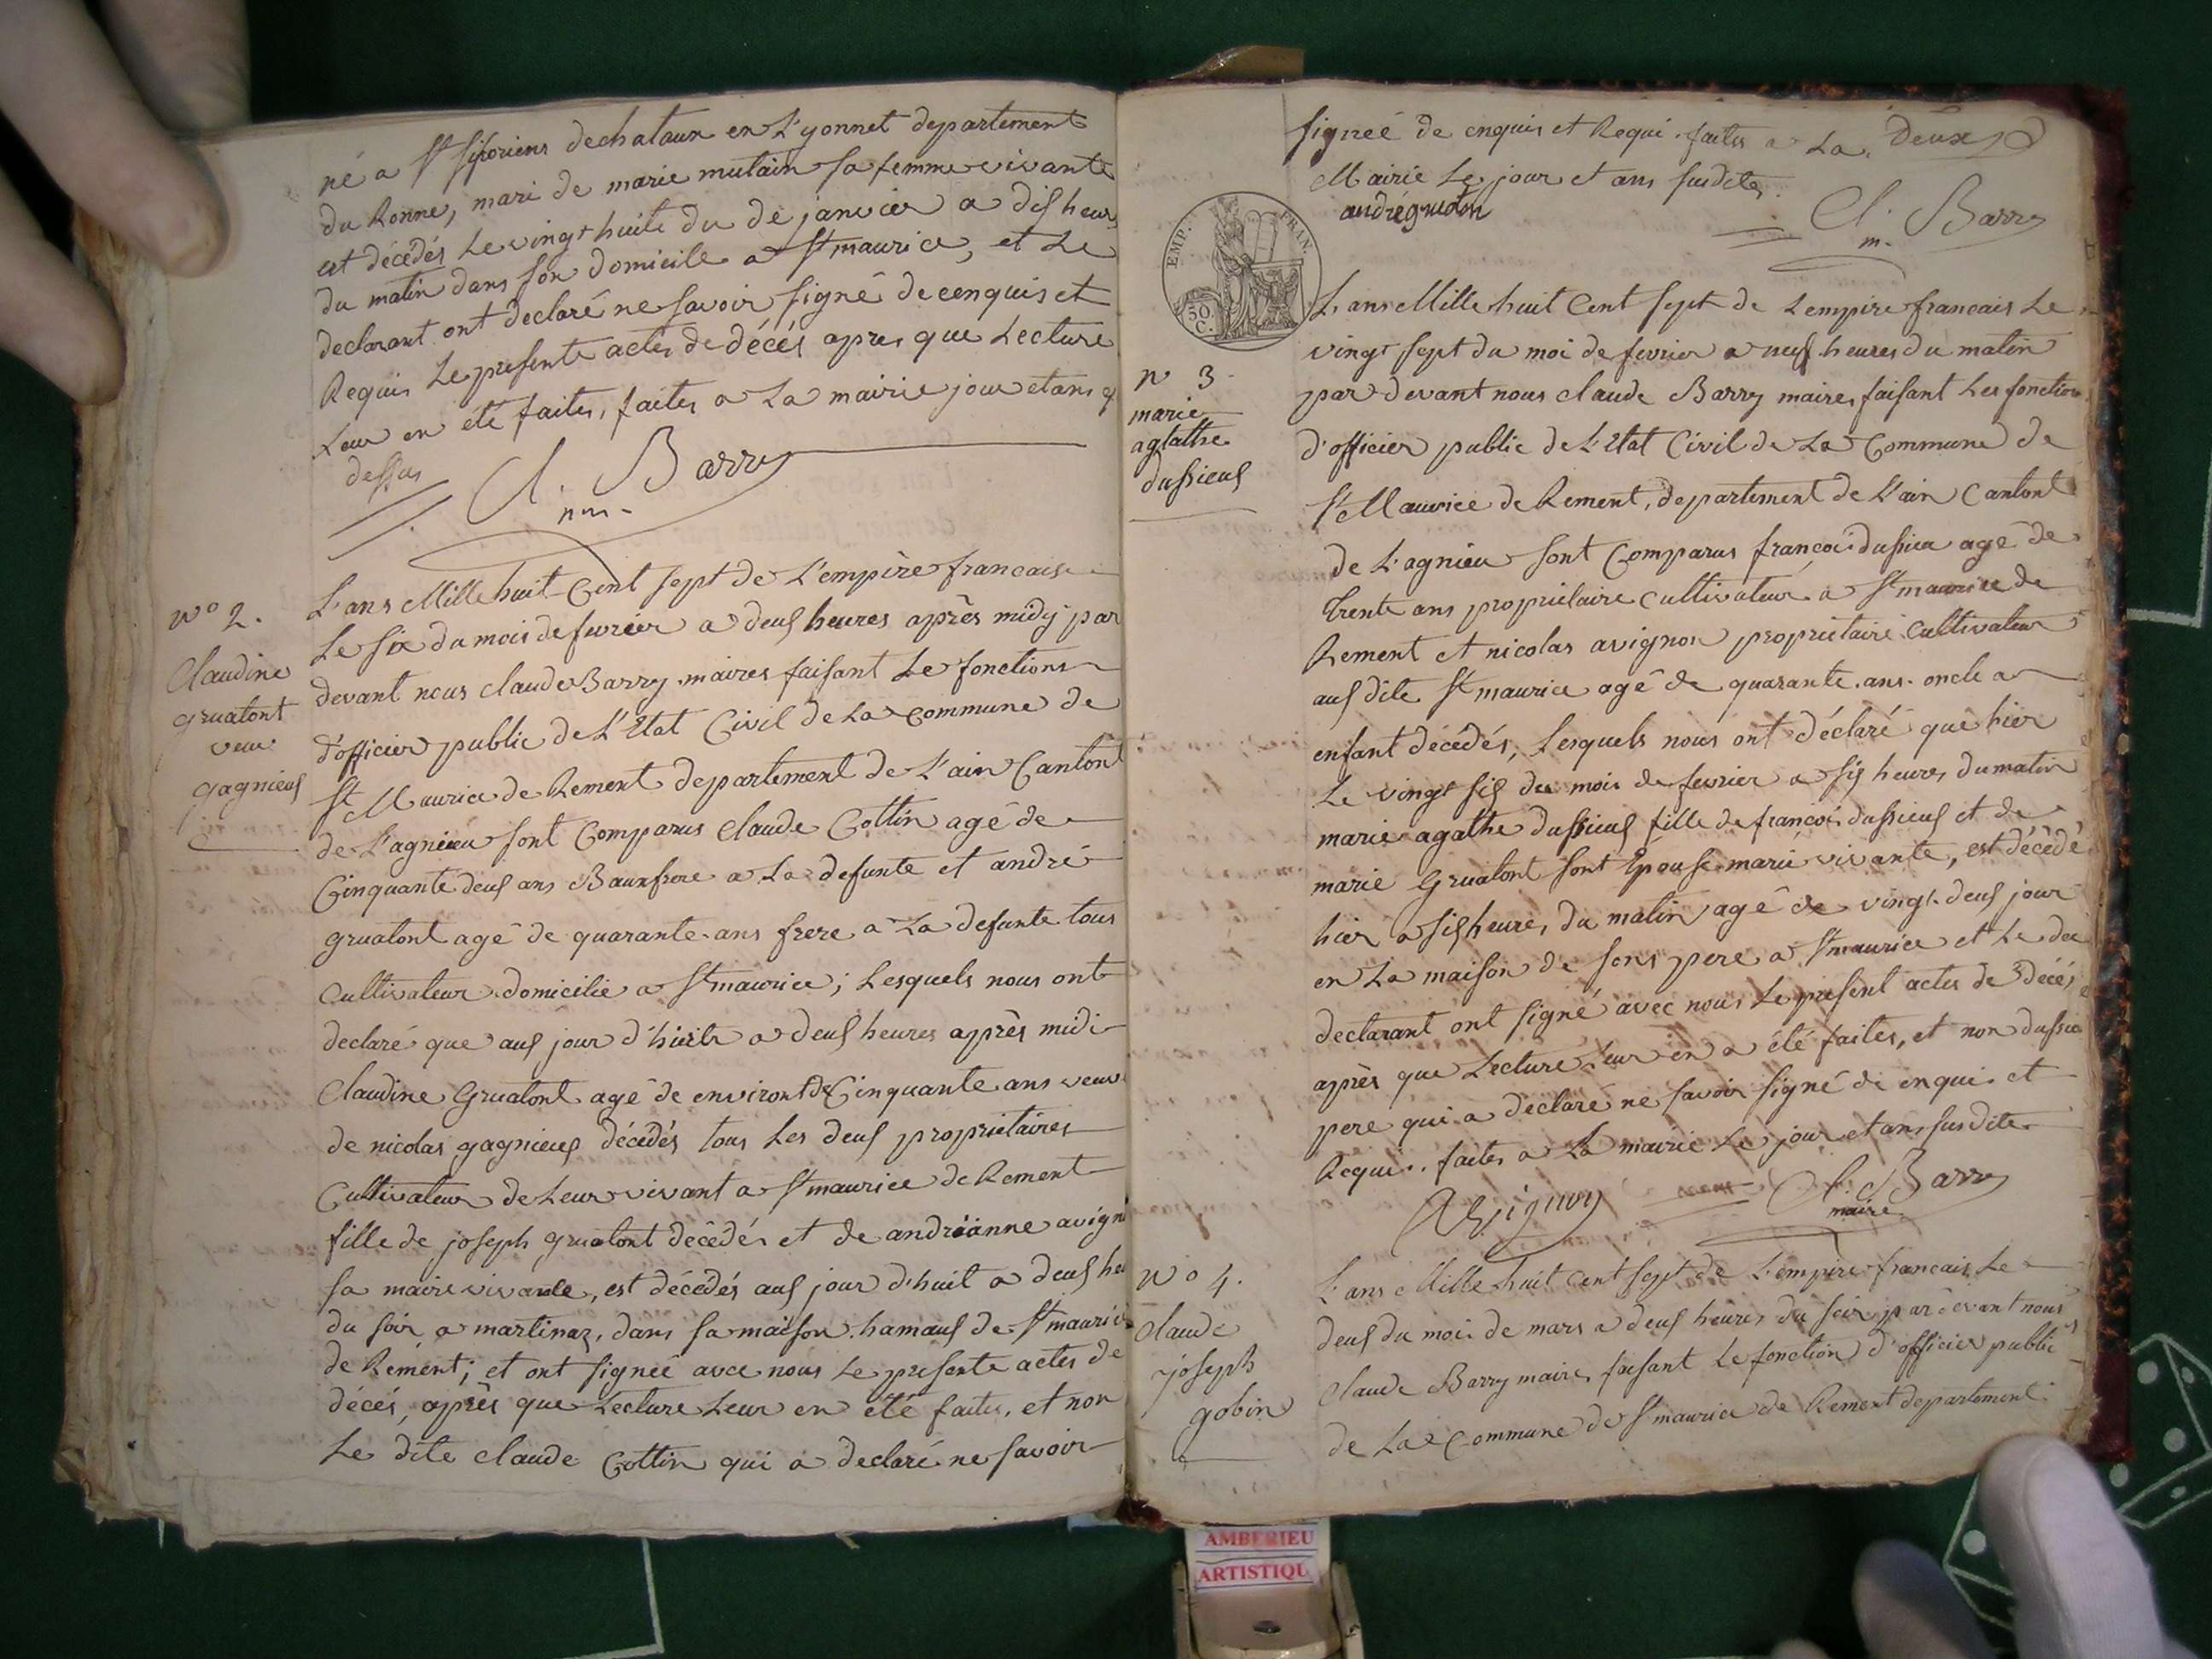 né a St siforiens dechataux en Lyonnet departement
du Ronne, mari de marie mutain sa femme vivante
est décédés Le vingt huite du de janvier a dis heures
du matin dans son domicile a St maurice, et Le
declarant ont declaré ne savoir signé de cenquis et
Requis Le presente actes de décés apres que Lecture
Leur en été faites, faites a La mairie jour et ans q
dessus
Cl. Barry
m.
N° 2.
Claudine
gruatont
veuve
gagnieus
L'ans Mille huit Cent sept de L'empire francais
Le six du mois de fevrier a deus heures après midy par
devant nous claude Barry maires faisant Le fonctions
d'officier public de L'Etat Civil de La commune de
St Maurice de Rement departement de L'ain Cantont
de L'agnieu sont Comparus Claude Cottin agé de
Cinquante deus ans Bauxfrere a La defunte et andré
gruatont agé de quarante ans frere a La defunte tous
Cultivateur domicilie a St maurice; Lesquels nous ont
declaré que aus jour d'huit a deus heures après midi
Claudine Gruatont agé de environt de Cinquante ans veuve
de nicolas gagnieus décédés tous Les deus proprietaires
Cultivateur de Leur vivant a St maurice de Rement
fille de joseph gruatont décédés et de andrianne avign
sa maire vivante, est décédés aus jour d'huit a deus heu
du soir a martinaz, dans sa maison hamaus de St maurice
de Rement; et ont signeé avec nous Le presente actes de
décés, après que Lecture Leur en été faites, et non
Le dite claude Cottin qui a declaré ne savoir
signeé de enquis et Requi faites a La Deux
Mairie Le jour et ans susdites
andré gruaton
Cl. Barry
m.
EMP. FRAN.
50 C.
n 3
marie
agtathe
dussieus
L'ans Mille huit Cent sept de L'empire francais Le
vingt sept du moi de fevrier a neuf heures du matin
par devant nous claude Barry maires faisant Les fonction
d'officier public de L'Etat Civil de La Commune de
St Maurice de Rement, departement de L'ain Cantont
de L'agnieu sont Comparus françoi dussieu agé de
trente ans proprietaire cultivateur a St maurice de
Rement et nicolas avignon proprietaire Cultivateur
aus dite St maurice agé de quarante ans oncle a
enfant décédés, Lesquels nous ont déclaré que hier
Le vingt sis du moi de fevrier a sis heures du matin
marie agathe dussieus fille de françoi dussieus et de
marie Gruatont sont Epouse marie vivante, est décédé
hier a sis heures du matin agé de vingt deus jour
en La maison de sons pere a St maurice et Le dec
declarant ont signé avec nous Le present actes de décés
après que Lecture Leur en a été faites, et non dussieu
pere qui a déclaré ne savoir signé de enqui et
Requi faites a La mairie Le jour et ans susdite
Avignon
Cl. Barry
maire
N° 4.
Claude
joseph
gobin
L'ans Mille huit Cent sept de L'empire francais Le
deus du moi de mars a deus heures du soir par devant nous
Claude Barry maire, faisant Le fonction d'officier public
de La Commune de St maurice de Rement departement
AMBERIEU
ARTISTIQU